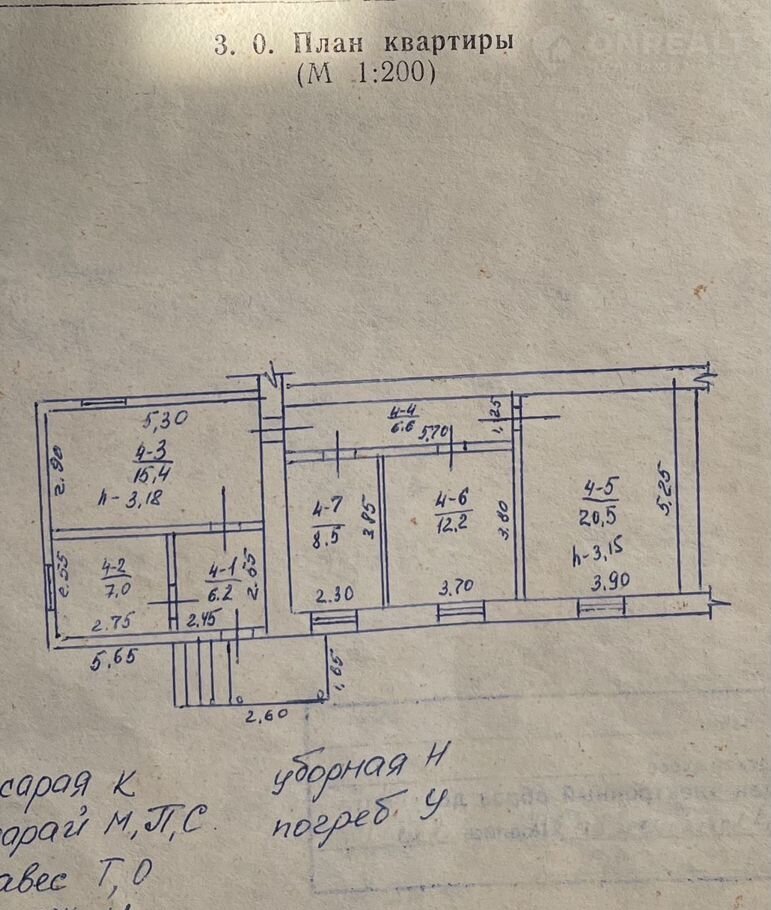 3. 0. План квартиры
(М 1:200)
5,30
4-3
15,4
h-3,18
2.90
4-4
6.6
5,70
1,25
4-5
20,5
h-3,15
3.90
5,25
4-6
12,2
3.70
4-7
8.5
3,85
2.30
4-2
7,0
2.75
2.55
4-1
6.2
2.45
2.65
5,65
1,65
2,60
сарая К
уборная Н
сарай М,П,С.
погреб У
авес Т,О